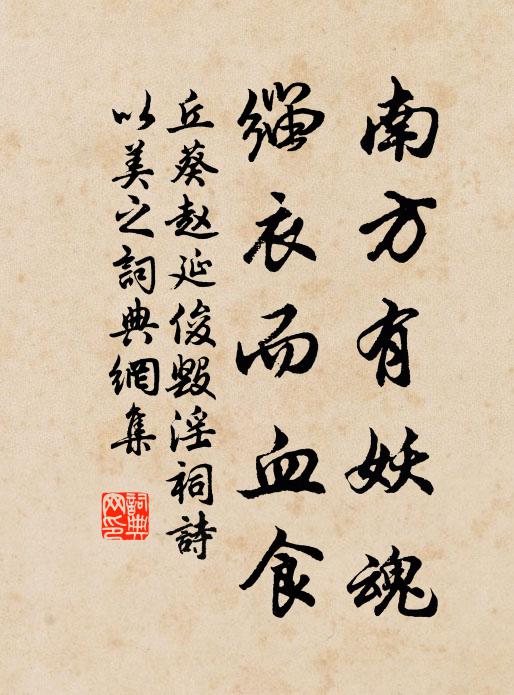 南方有妖魂
緇衣而血食
丘葵赵延俊毀淫祠詩
以美之詞典網集
詞典
网印